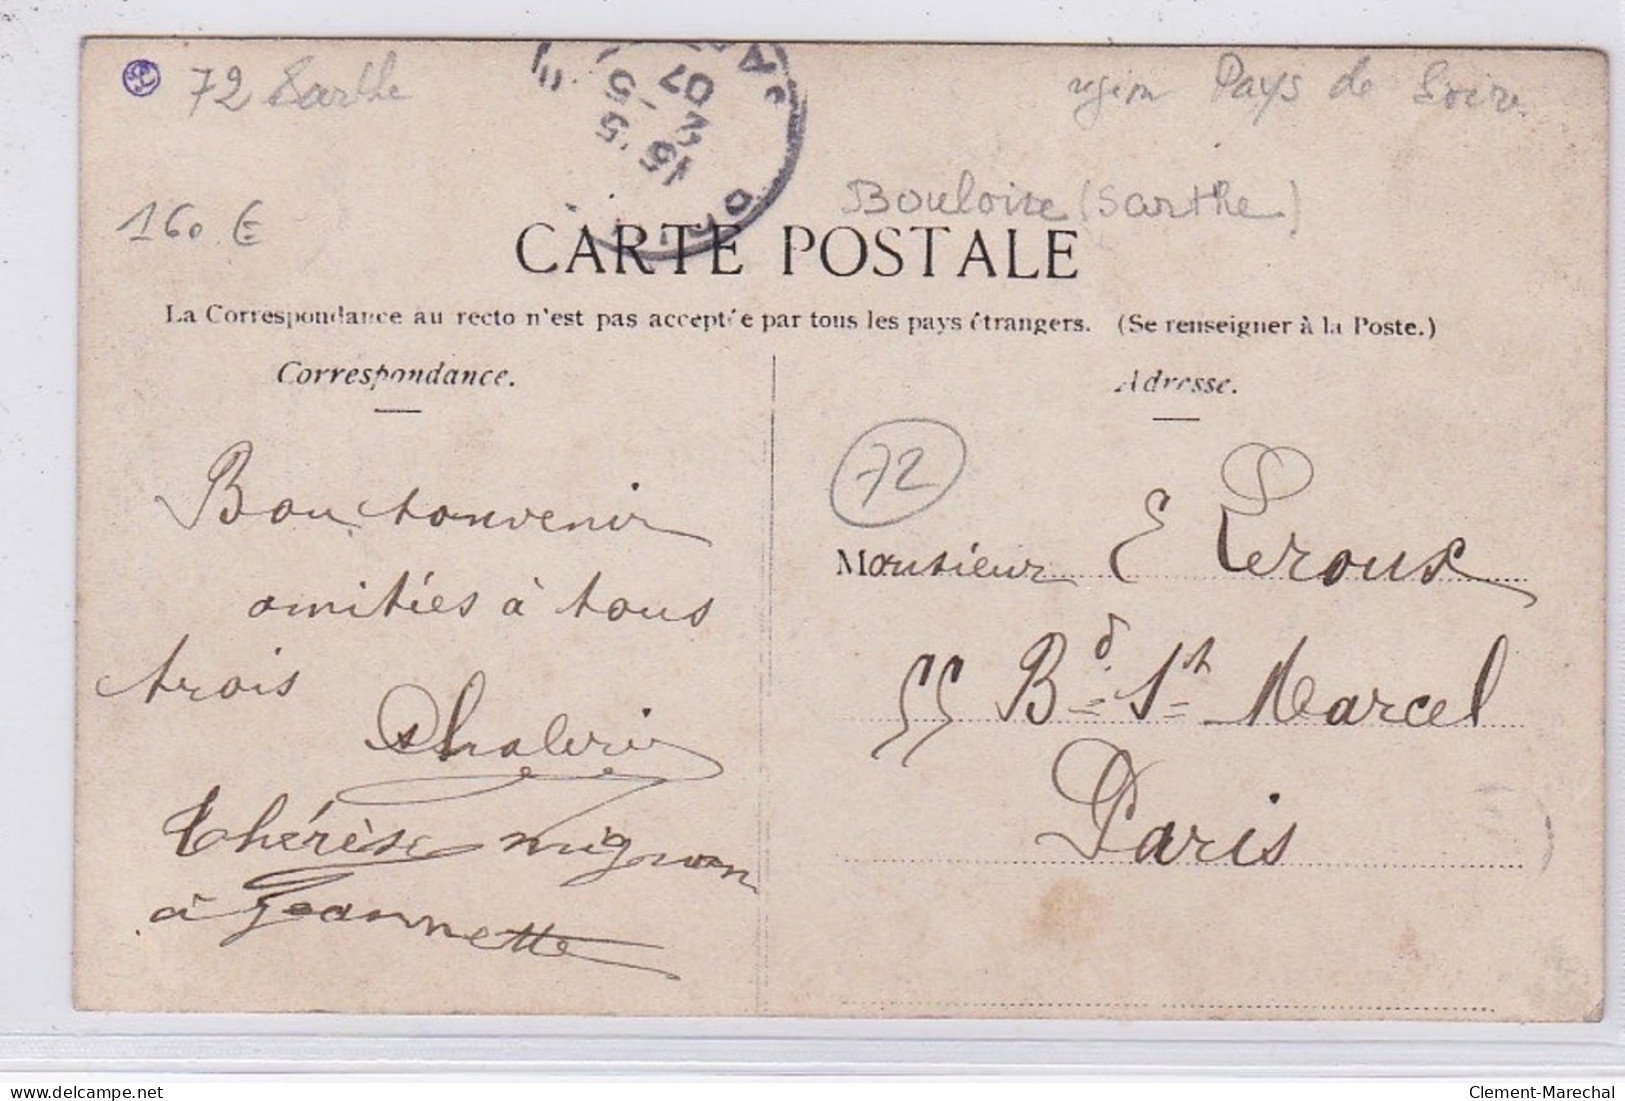 72 Sarthe
region Pays de Loire
15 5
-5
07
Bouloire (Sarthe)
160 €
CARTE POSTALE
La Correspondance au recto n'est pas acceptée par tous les pays étrangers. (Se renseigner à la Poste.)
Correspondance.
Bon souvenir
amitiés à tous
trois
Thérèse mignon
à Jeannette
Adresse.
72
Monsieur E Leroux
55 Bd St Marcel
Paris
delcampe.net
Clement-Marechal